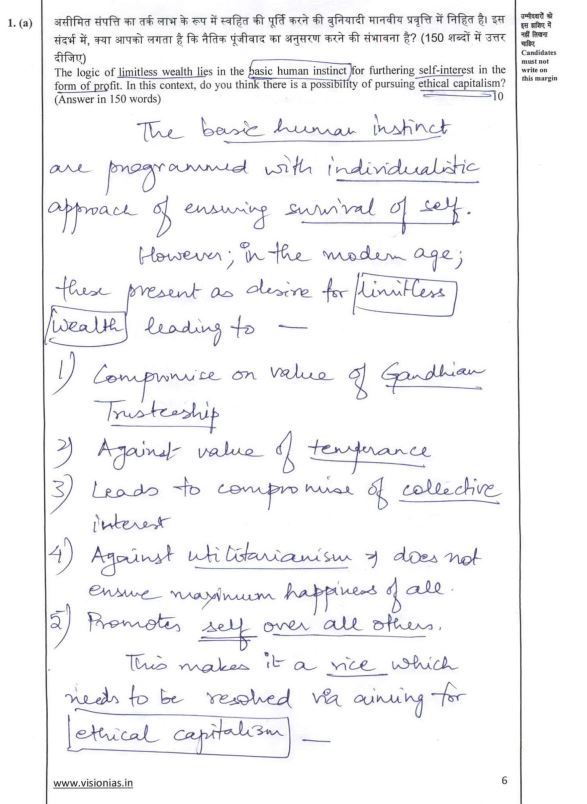 1. (a) असीमित संपत्ति का तर्क लाभ के रूप में स्वहित की पूर्ति करने की बुनियादी मानवीय प्रवृत्ति में निहित है। इस
संदर्भ में, क्या आपको लगता है कि नैतिक पूंजीवाद का अनुसरण करने की संभावना है? (150 शब्दों में उत्तर
दीजिए)
The logic of limitless wealth lies in the basic human instinct for furthering self-interest in the
form of profit. In this context, do you think there is a possibility of pursuing ethical capitalism?
(Answer in 150 words) 10
उम्मीदवारों को
इस हाशिए में
नहीं लिखना
चाहिए
Candidates
must not
write on
this margin
The basic human instinct
are programmed with individualistic
approach of ensuring survival of self.
However; in the modern age;
these present as desire for limitless
wealth leading to —
1) Compromise on value of Gandhian
Trusteeship
2) Against value of temperance
3) Leads to compromise of collective
interest
4) Against utilitarianism & does not
ensure maximum happiness of all.
5) Promotes self over all others.
This makes it a vice which
needs to be resolved via aiming for
ethical capitalism —
www.visionias.in
6